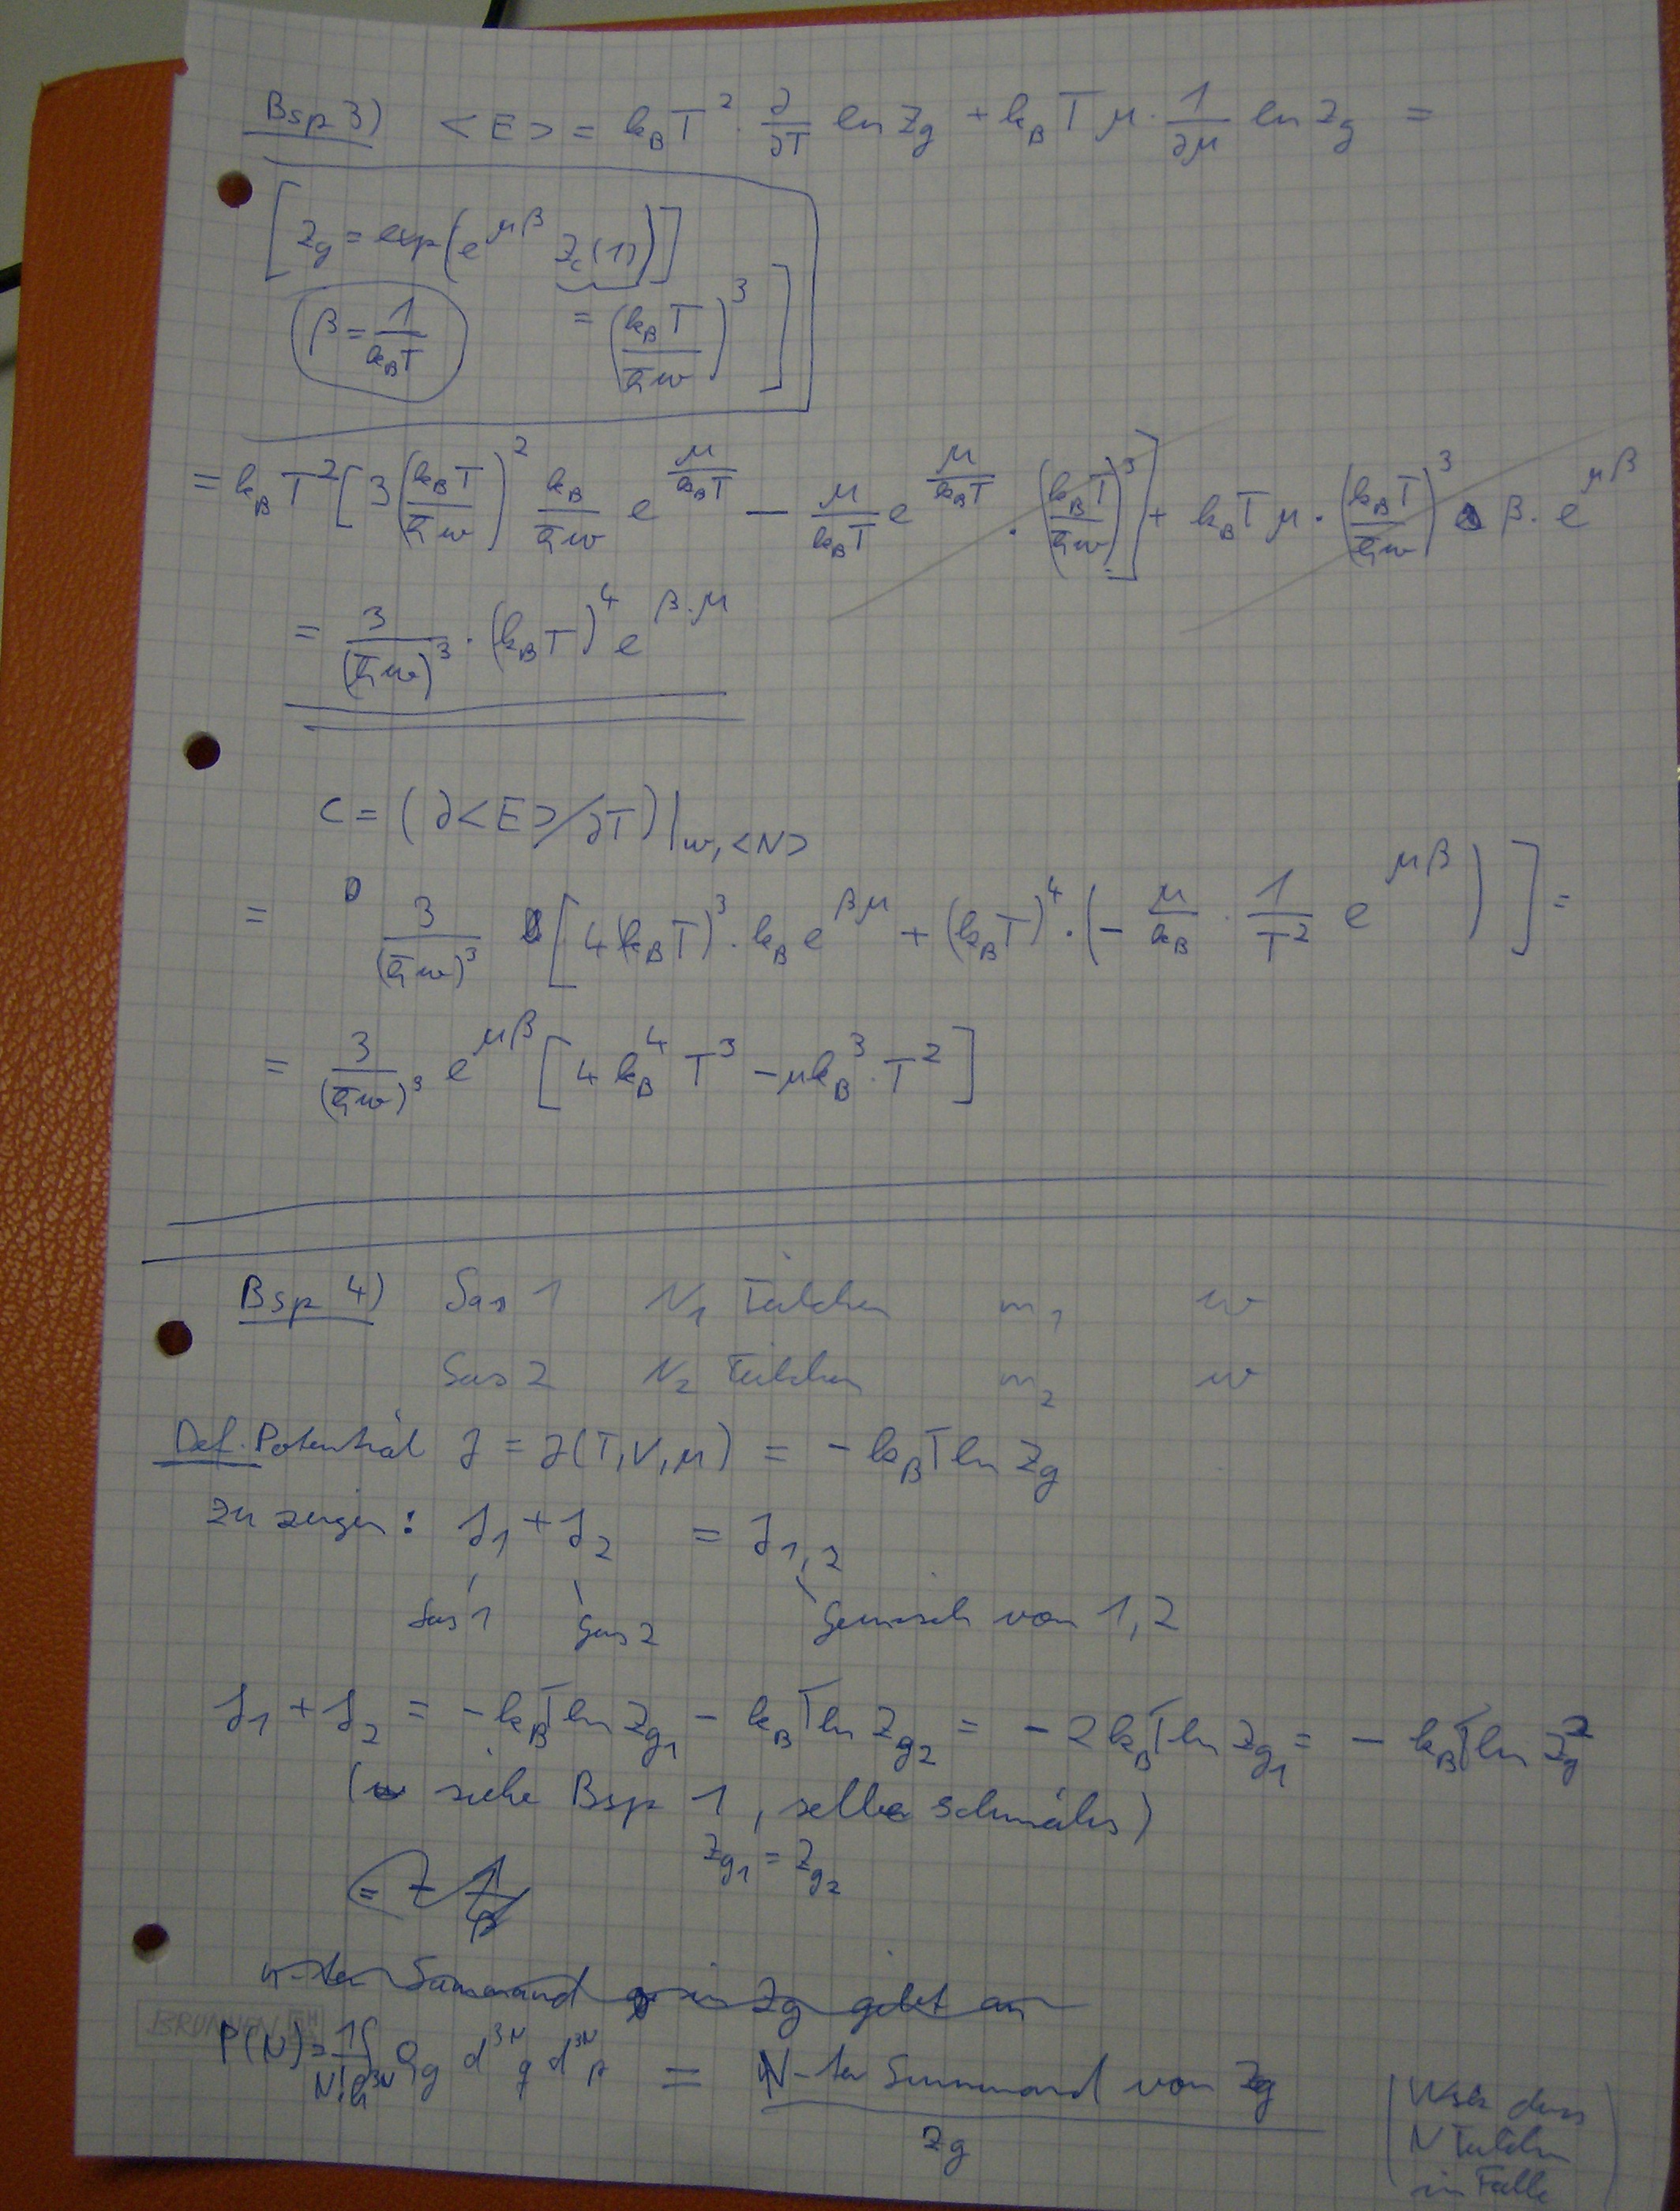 Bsp 3) <E> = k_B T² · ∂/∂T ln Z_g + k_B T μ · 1/∂μ ln Z_g =
[Z_g = exp(e^{μβ} Z_c(1))]
β = 1/(k_B T) = (k_B T/ħω)³ ]
= k_B T² [3 (k_B T/ħω)² k_B/ħω e^{μ/(k_B T)} − μ/(k_B T) e^{μ/(k_B T)} · (k_B T/ħω)³] + k_B T μ · (k_B T/ħω)³ β · e^{μβ}
= 3/(ħω)³ · (k_B T)⁴ e^{β·μ}
C = (∂<E>/∂T)|_{ω,<N>}
= 3/(ħω)³ [4(k_B T)³ · k_B e^{βμ} + (k_B T)⁴ · (− μ/k_B · 1/T² e^{μβ})] =
= 3/(ħω)³ e^{μβ} [4 k_B⁴ T³ − μ k_B³ · T²]
Bsp 4) Gas 1 N₁ Teilchen m₁ ω
Gas 2 N₂ Teilchen m₂ ω
Def. Potential J = J(T,V,μ) = − k_B T ln Z_g
zu zeigen: J₁ + J₂ = J₁,₂
Gas 1 Gas 2 Gemisch von 1,2
J₁ + J₂ = − k_B T ln Z_g₁ − k_B T ln Z_g₂ = − 2 k_B T ln Z_g₁ = − k_B T ln Z_g²
(siehe Bsp 1, selbe
Z_g₁ = Z_g₂
n-ter Summand in Z_g gibt an
BRUNNEN
P(N) = 1/(N! h^{3N}) ∫ ϱ_g d^{3N}q d^{3N}p = N-ter Summand von Z_g / Z_g
(Wsk dass
N Teilchen
in Falle